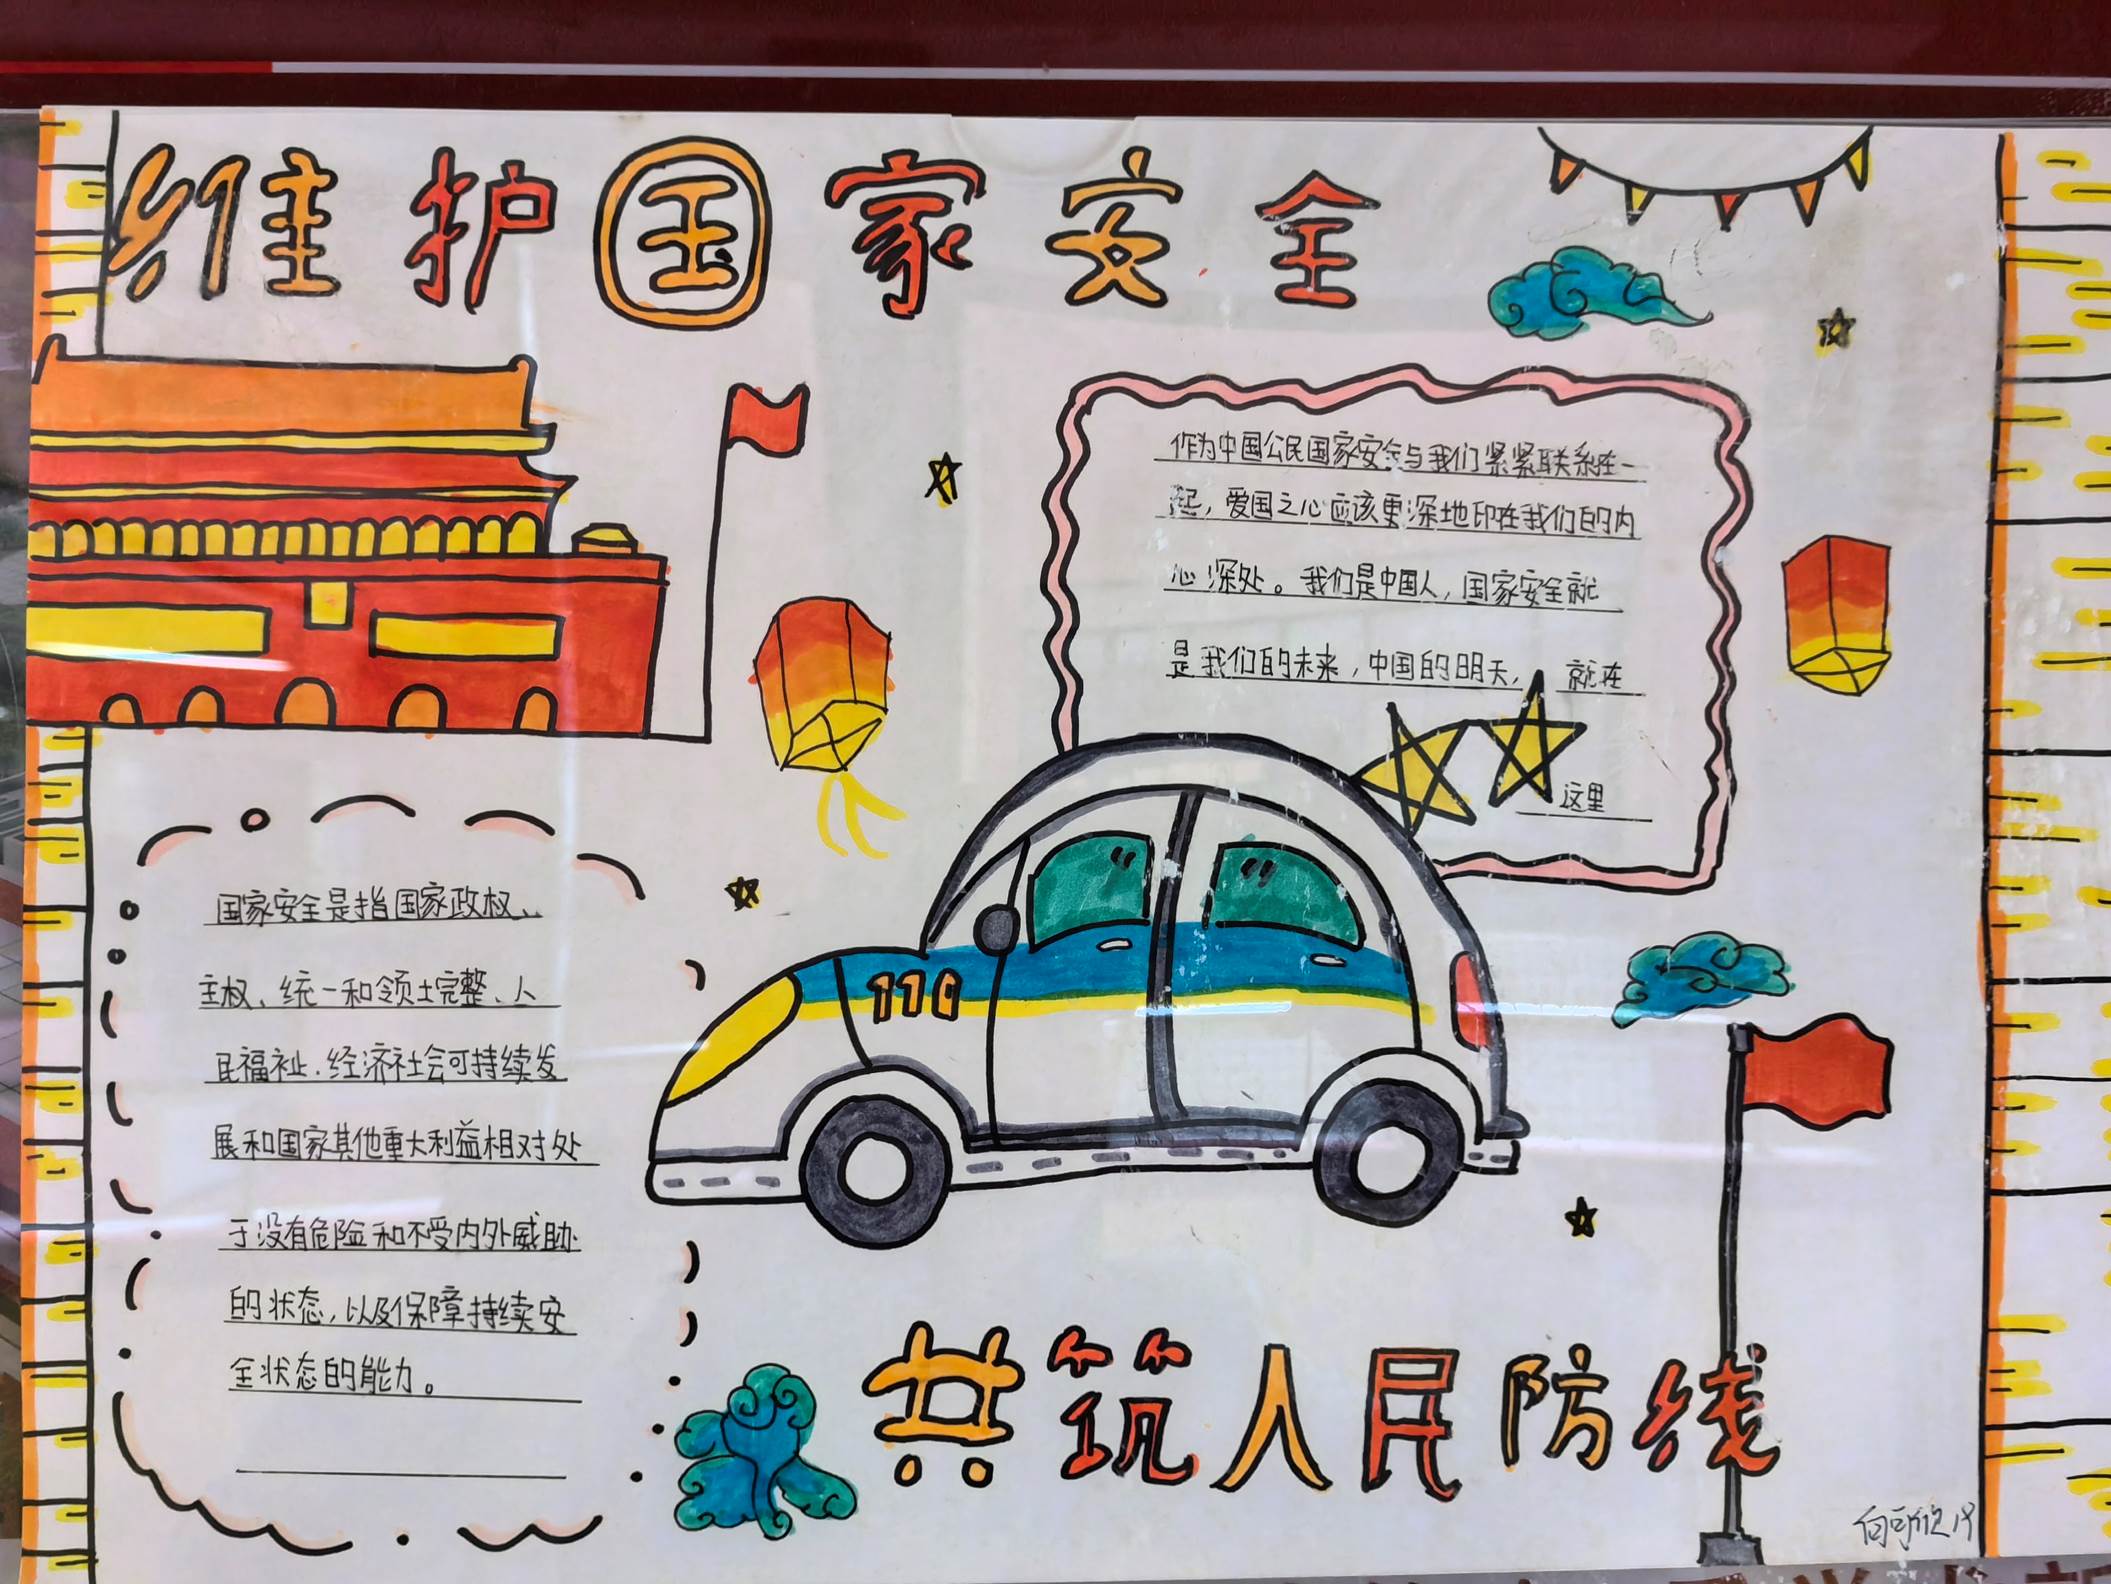 维护国家安全
作为中国公民国家安全与我们紧紧联系在一
起，爱国之心应该更深地印在我们的内
心深处。我们是中国人，国家安全就
是我们的未来，中国的明天，就在
这里
110
国家安全是指国家政权、
主权、统一和领土完整、人
民福祉、经济社会可持续发
展和国家其他重大利益相对处
于没有危险和不受内外威胁
的状态，以及保障持续安
全状态的能力。
共筑人民防线